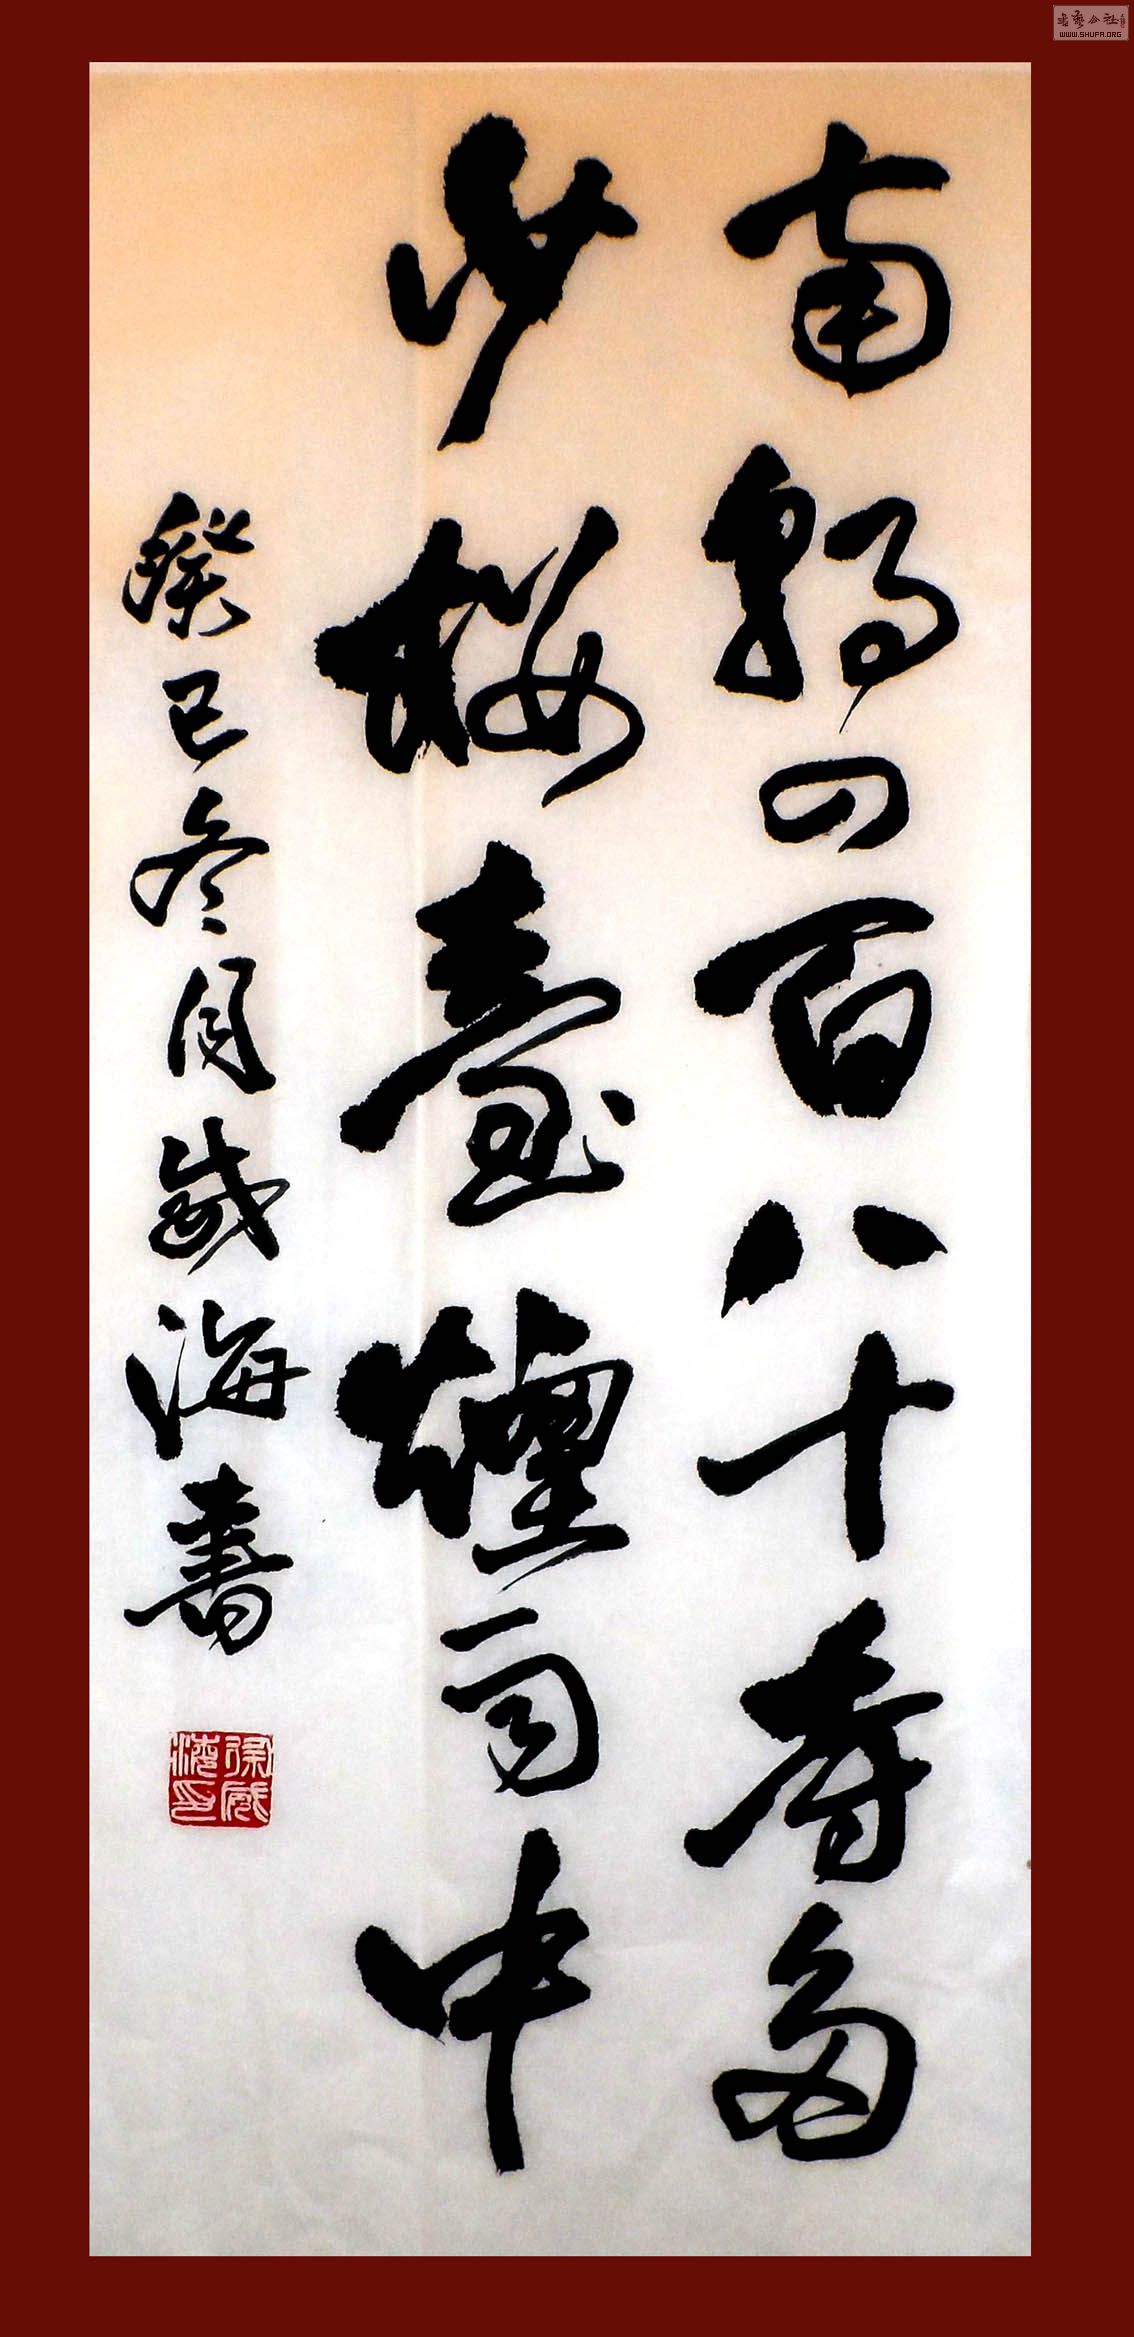 南朝四百八十寺多
少楼臺煙雨中
癸巳冬月威海書
徐威海印
書藝公社
WWW.SHUFA.ORG